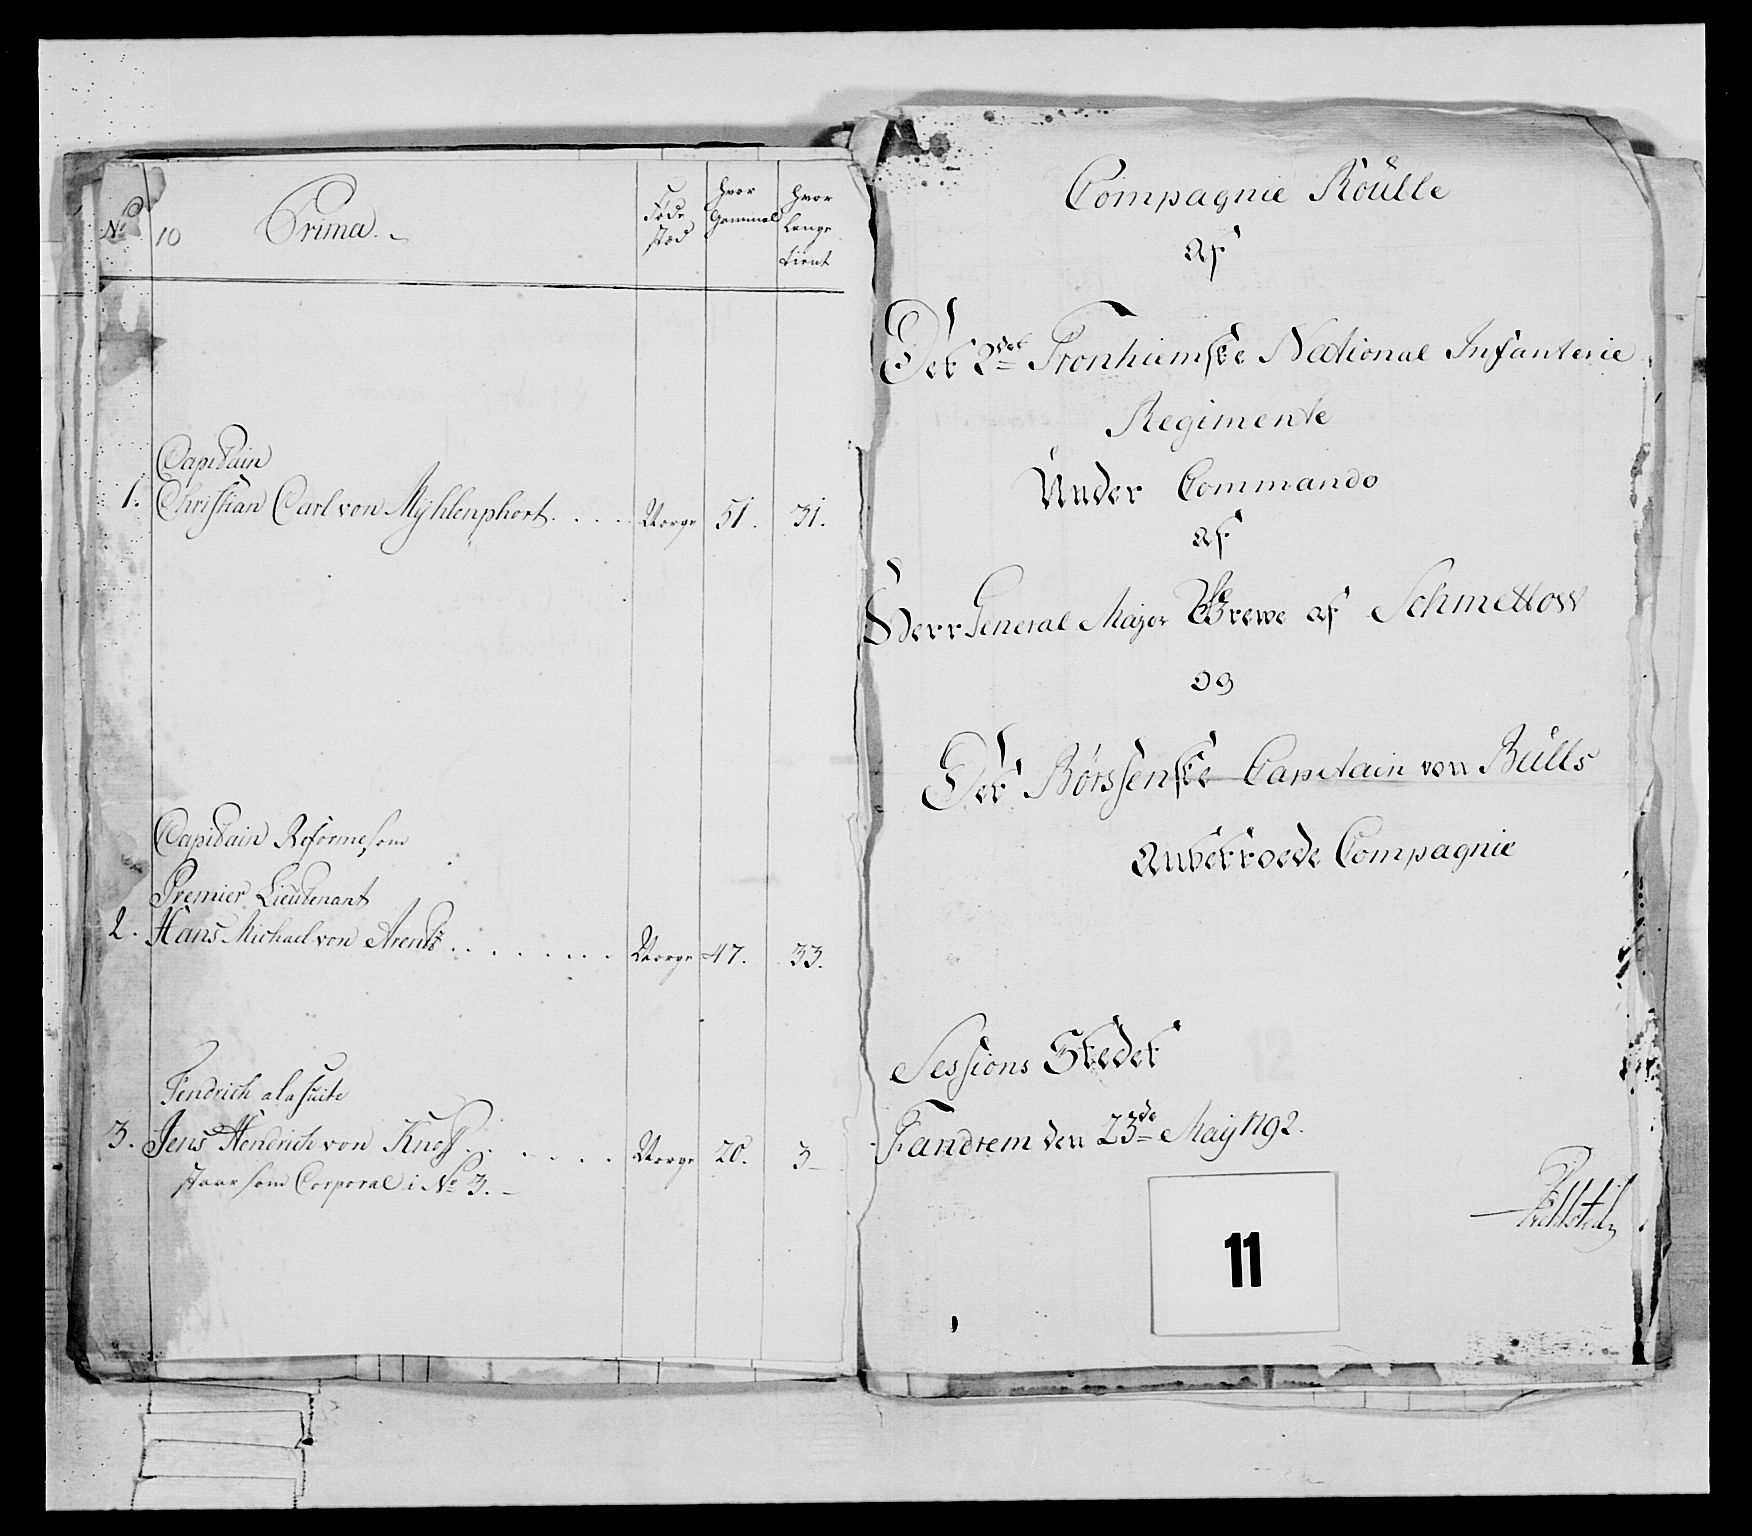 No 10 Prima.
Føde stæd
Hvor Gammel
Hvor Lenge tient
Capitain
1. Christian Carl von Myhlenphort . . . . Norge 51. 31.
Capitain Reforme, som
Premier Lieutenant
2. Hans Michael von Arentz . . . . . . . Norge 47. 33.
Fendrich a la suite
3. Jens Hendrich von Knoff . . . . . . Norge 20. 3
staar som Corporal i No 3.
Compagnie Roulle
af
Det 2det Tronhiemske National Infanterie
Regimente
Under Commando
af
Herr General Major Grewe af Schmettow
og
Det Børssenske Capitain von Bülls
anbetroede Compagnie
Sessions Stedet
Fandrem den 23de May 1792.
11